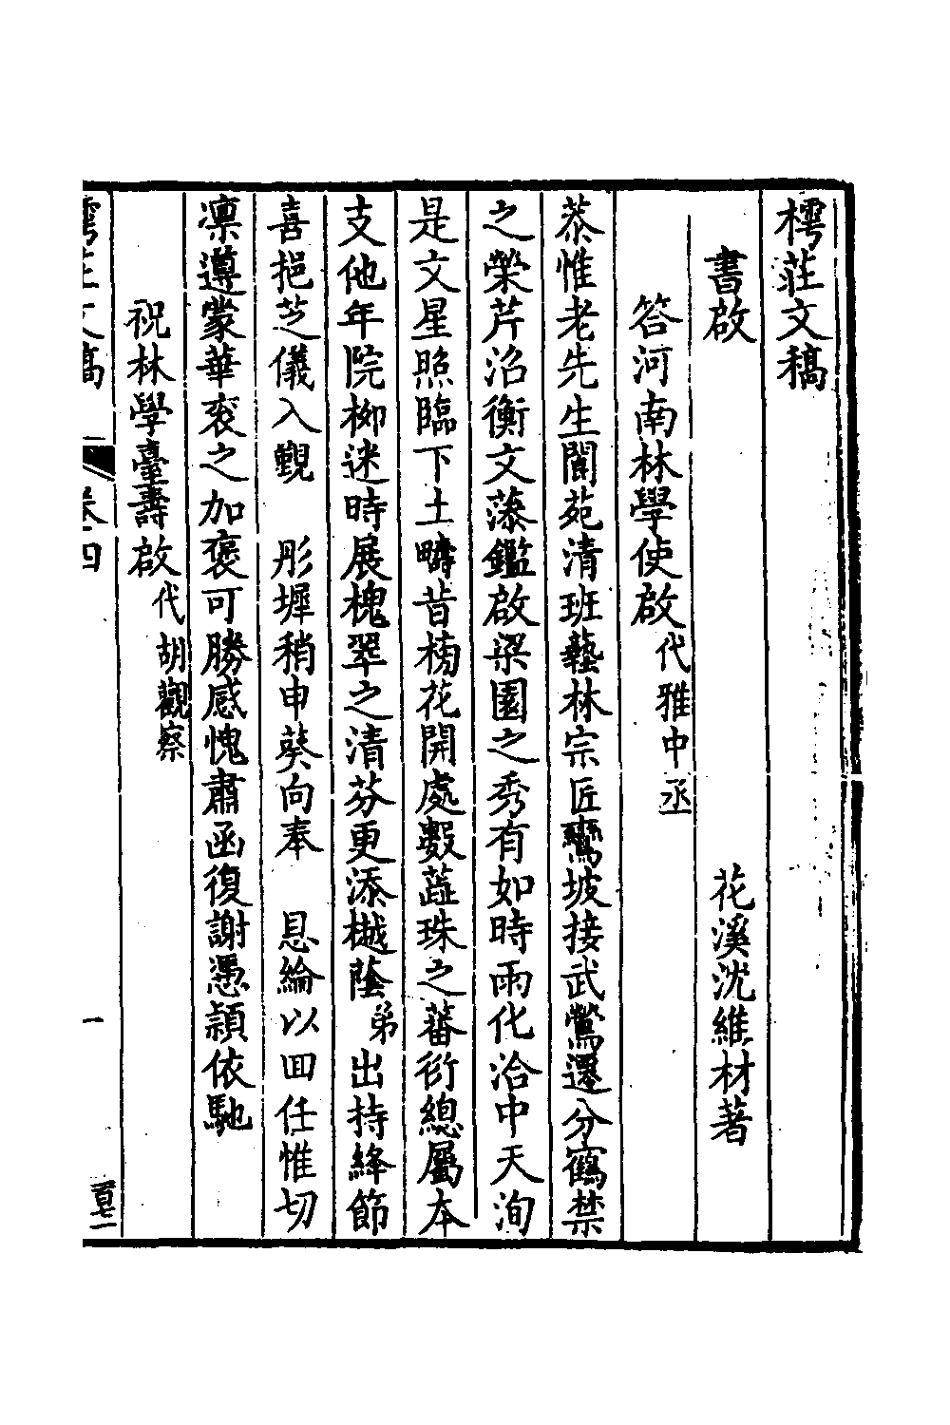 樗莊文稿
書啟　花溪沈維材著
答河南林學使啟代雅中丞
恭惟老先生閬苑清班藝林宗匠鸞坡接武鶯遷分鶴禁
之榮芹沼衡文藻鑑啟梁園之秀有如時雨化洽中天洵
是文星照臨下土疇昔榜花開處數蕋珠之蕃衍總屬本
支他年院柳迷時展槐翠之清芬更添樾蔭弟出持絳節
喜挹芝儀入覲　彤墀稍申葵向奉　恩綸以回任惟切
凛遵蒙華衮之加褒可勝感愧肅函復謝慿頴依馳
祝林學臺壽啟代胡觀察
樗莊文稿　卷四　一　百二